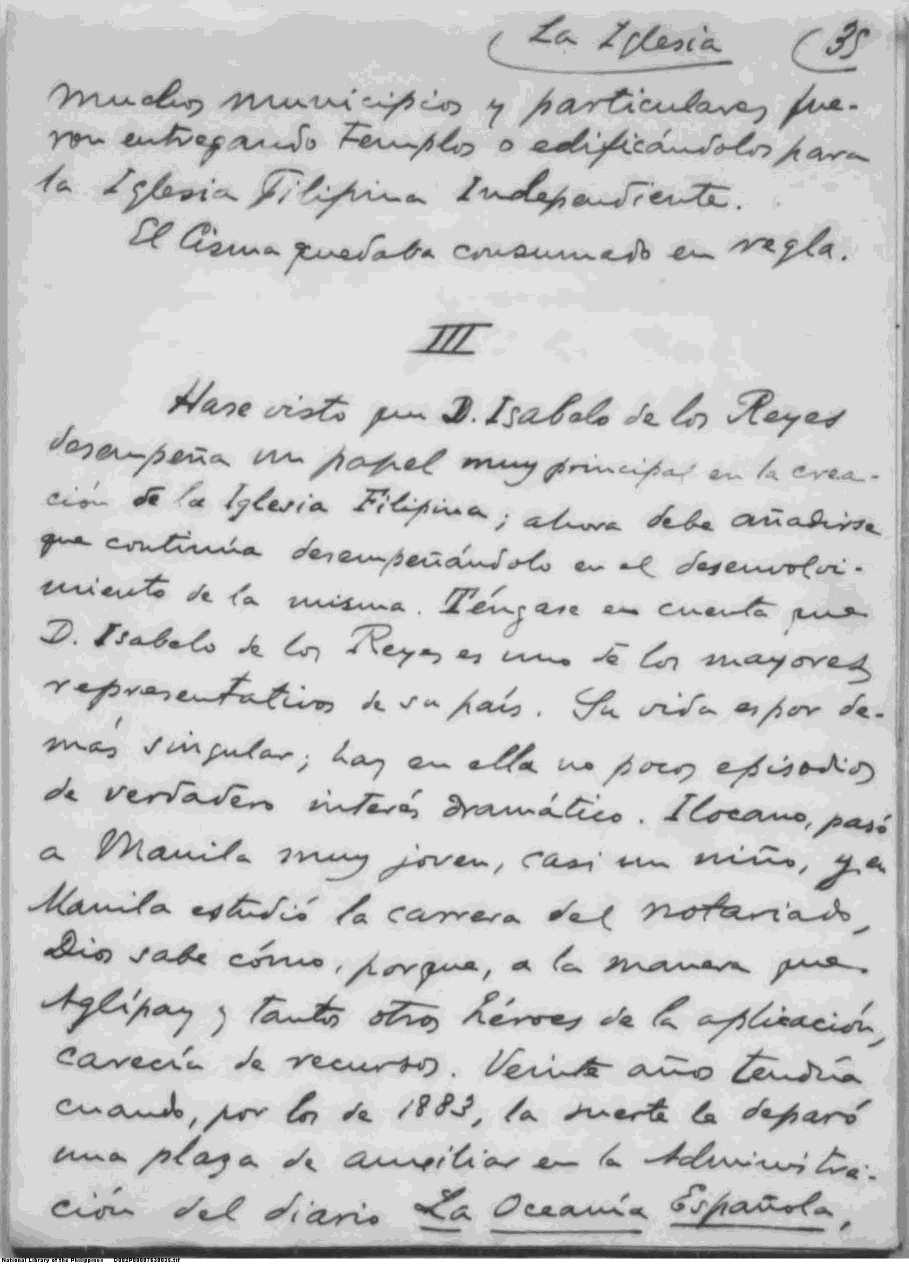 La Iglesia 35
muchos municipios y particulares fue-
ron entregando Templos o edificándolos para
la Iglesia Filipina Independiente.
El Cisma quedaba consumado en regla.
III
Hase visto que D. Isabelo de los Reyes
desempeña un papel muy principal en la crea-
ción de la Iglesia Filipina; ahora debe añadirse
que continúa desempeñándolo en el desenvolvi-
miento de la misma. Téngase en cuenta que
D. Isabelo de los Reyes es uno de los mayores
representativos de su país. Su vida es por de-
más singular; hay en ella no pocos episodios
de verdadero interés dramático. Ilocano, pasó
a Manila muy joven, casi un niño, y en
Manila estudió la carrera del notariado,
Dios sabe cómo, porque, a la manera que
Aglípay y tantos otros héroes de la aplicación,
carecía de recursos. Veinte años tendría
cuando, por los de 1883, la suerte le deparó
una plaza de auxiliar en la Administra-
ción del diario La Oceanía Española,
National Library of the Philippines